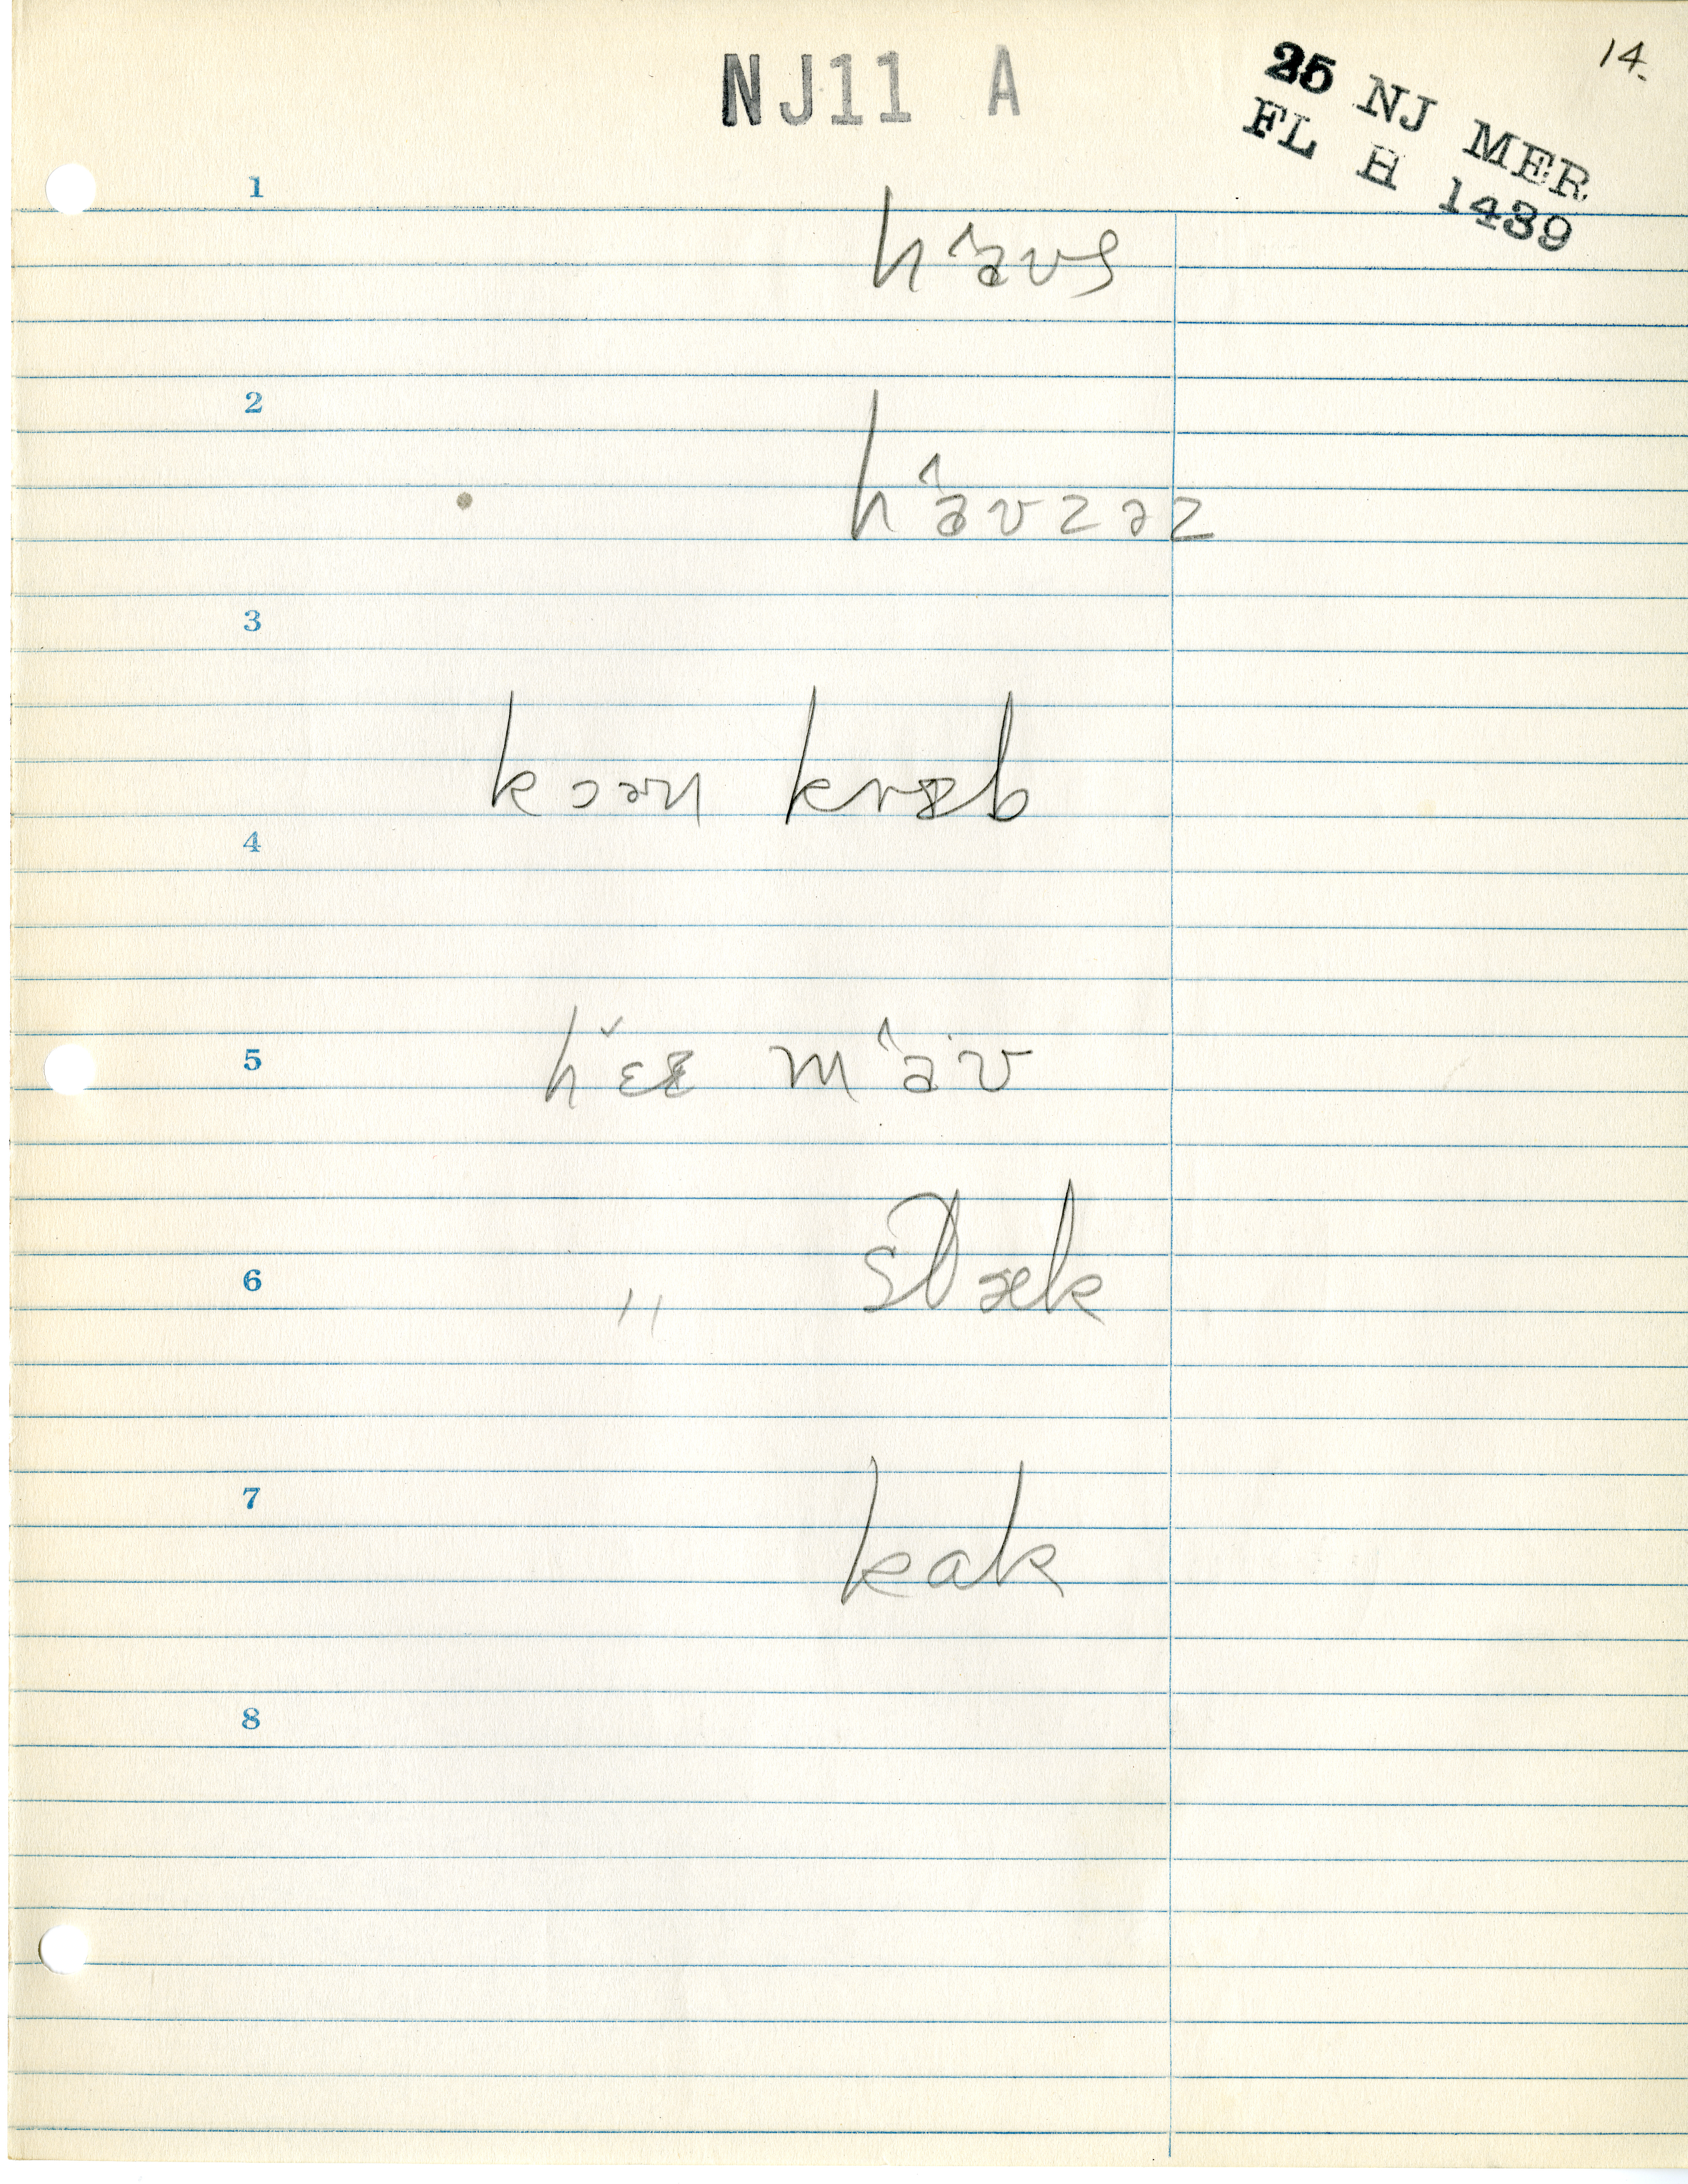 14.
NJ11 A
25 NJ MER
FL H 1439
1
haʊs
2
haʊzəz
3
kɔən kræb
4
5
hɛæ maʊ
6
" stæk
7
kak
8